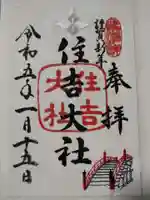 奉拝
謹賀新年
住吉大社
住吉
大社
令和五年一月十五日